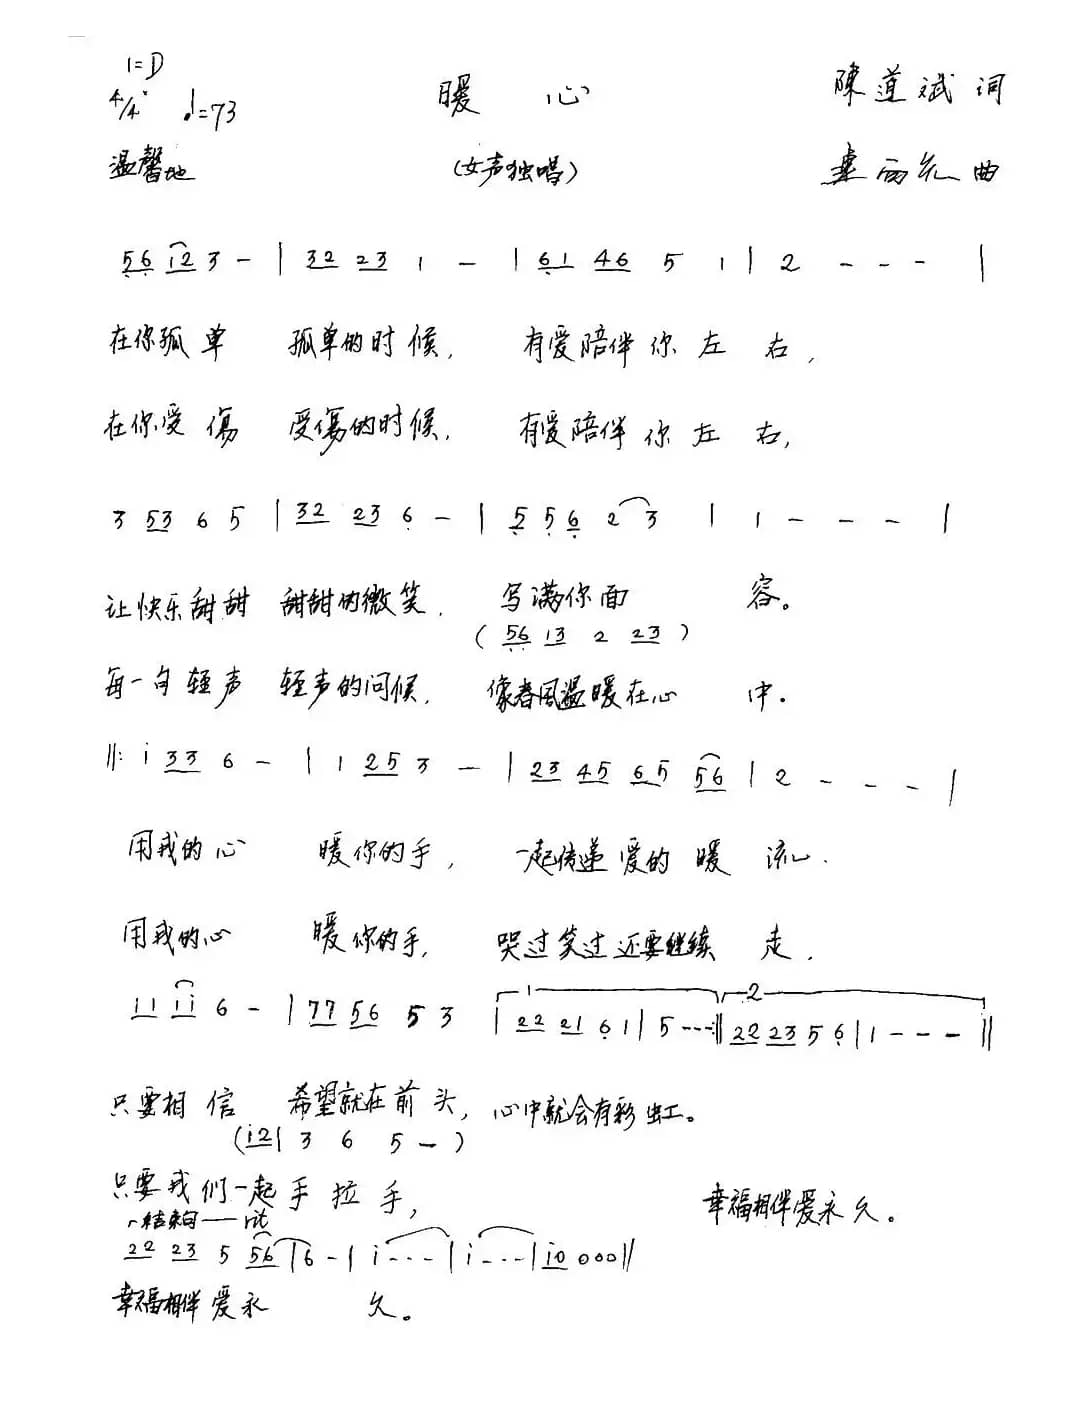 1=D
4/4 ♩=73 暖 心 陳道斌 词
温馨地 (女声独唱) 雨 曲
56 12 3 - | 32 23 1 - | 61 46 5 1 | 2 - - - |
在你孤单 孤单的时候, 有爱陪伴你左右,
在你受傷 受傷的时候, 有爱陪伴你左右,
3 53 6 5 | 32 23 6 - | 5 5 6 2 3 | 1 - - - |
让快乐甜甜 甜甜的微笑, 写满你面 容。
(56 13 2 23)
每一句轻声 轻声的问候, 像春风温暖在心 中.
‖: i 33 6 - | 1 25 3 - | 23 45 65 56 | 2 - - - |
用我的心 暖你的手, 一起传递爱的暖 流.
用我的心 暖你的手, 哭过笑过还要继续 走.
11 1i 6 - | 77 56 5 3 | 1 22 21 6 1 | 5 - - - :‖ 2 22 23 5 6 | 1 - - - ‖
只要相信 希望就在前头, 心中就会有彩虹。
(i2 | 3 6 5 -)
只要我们一起手拉手, 幸福相伴爱永久。
结束句——rit
22 23 5 56 | 6 - | i - - - | i - - - | i0 0 0 0 ‖
幸福相伴爱永 久。